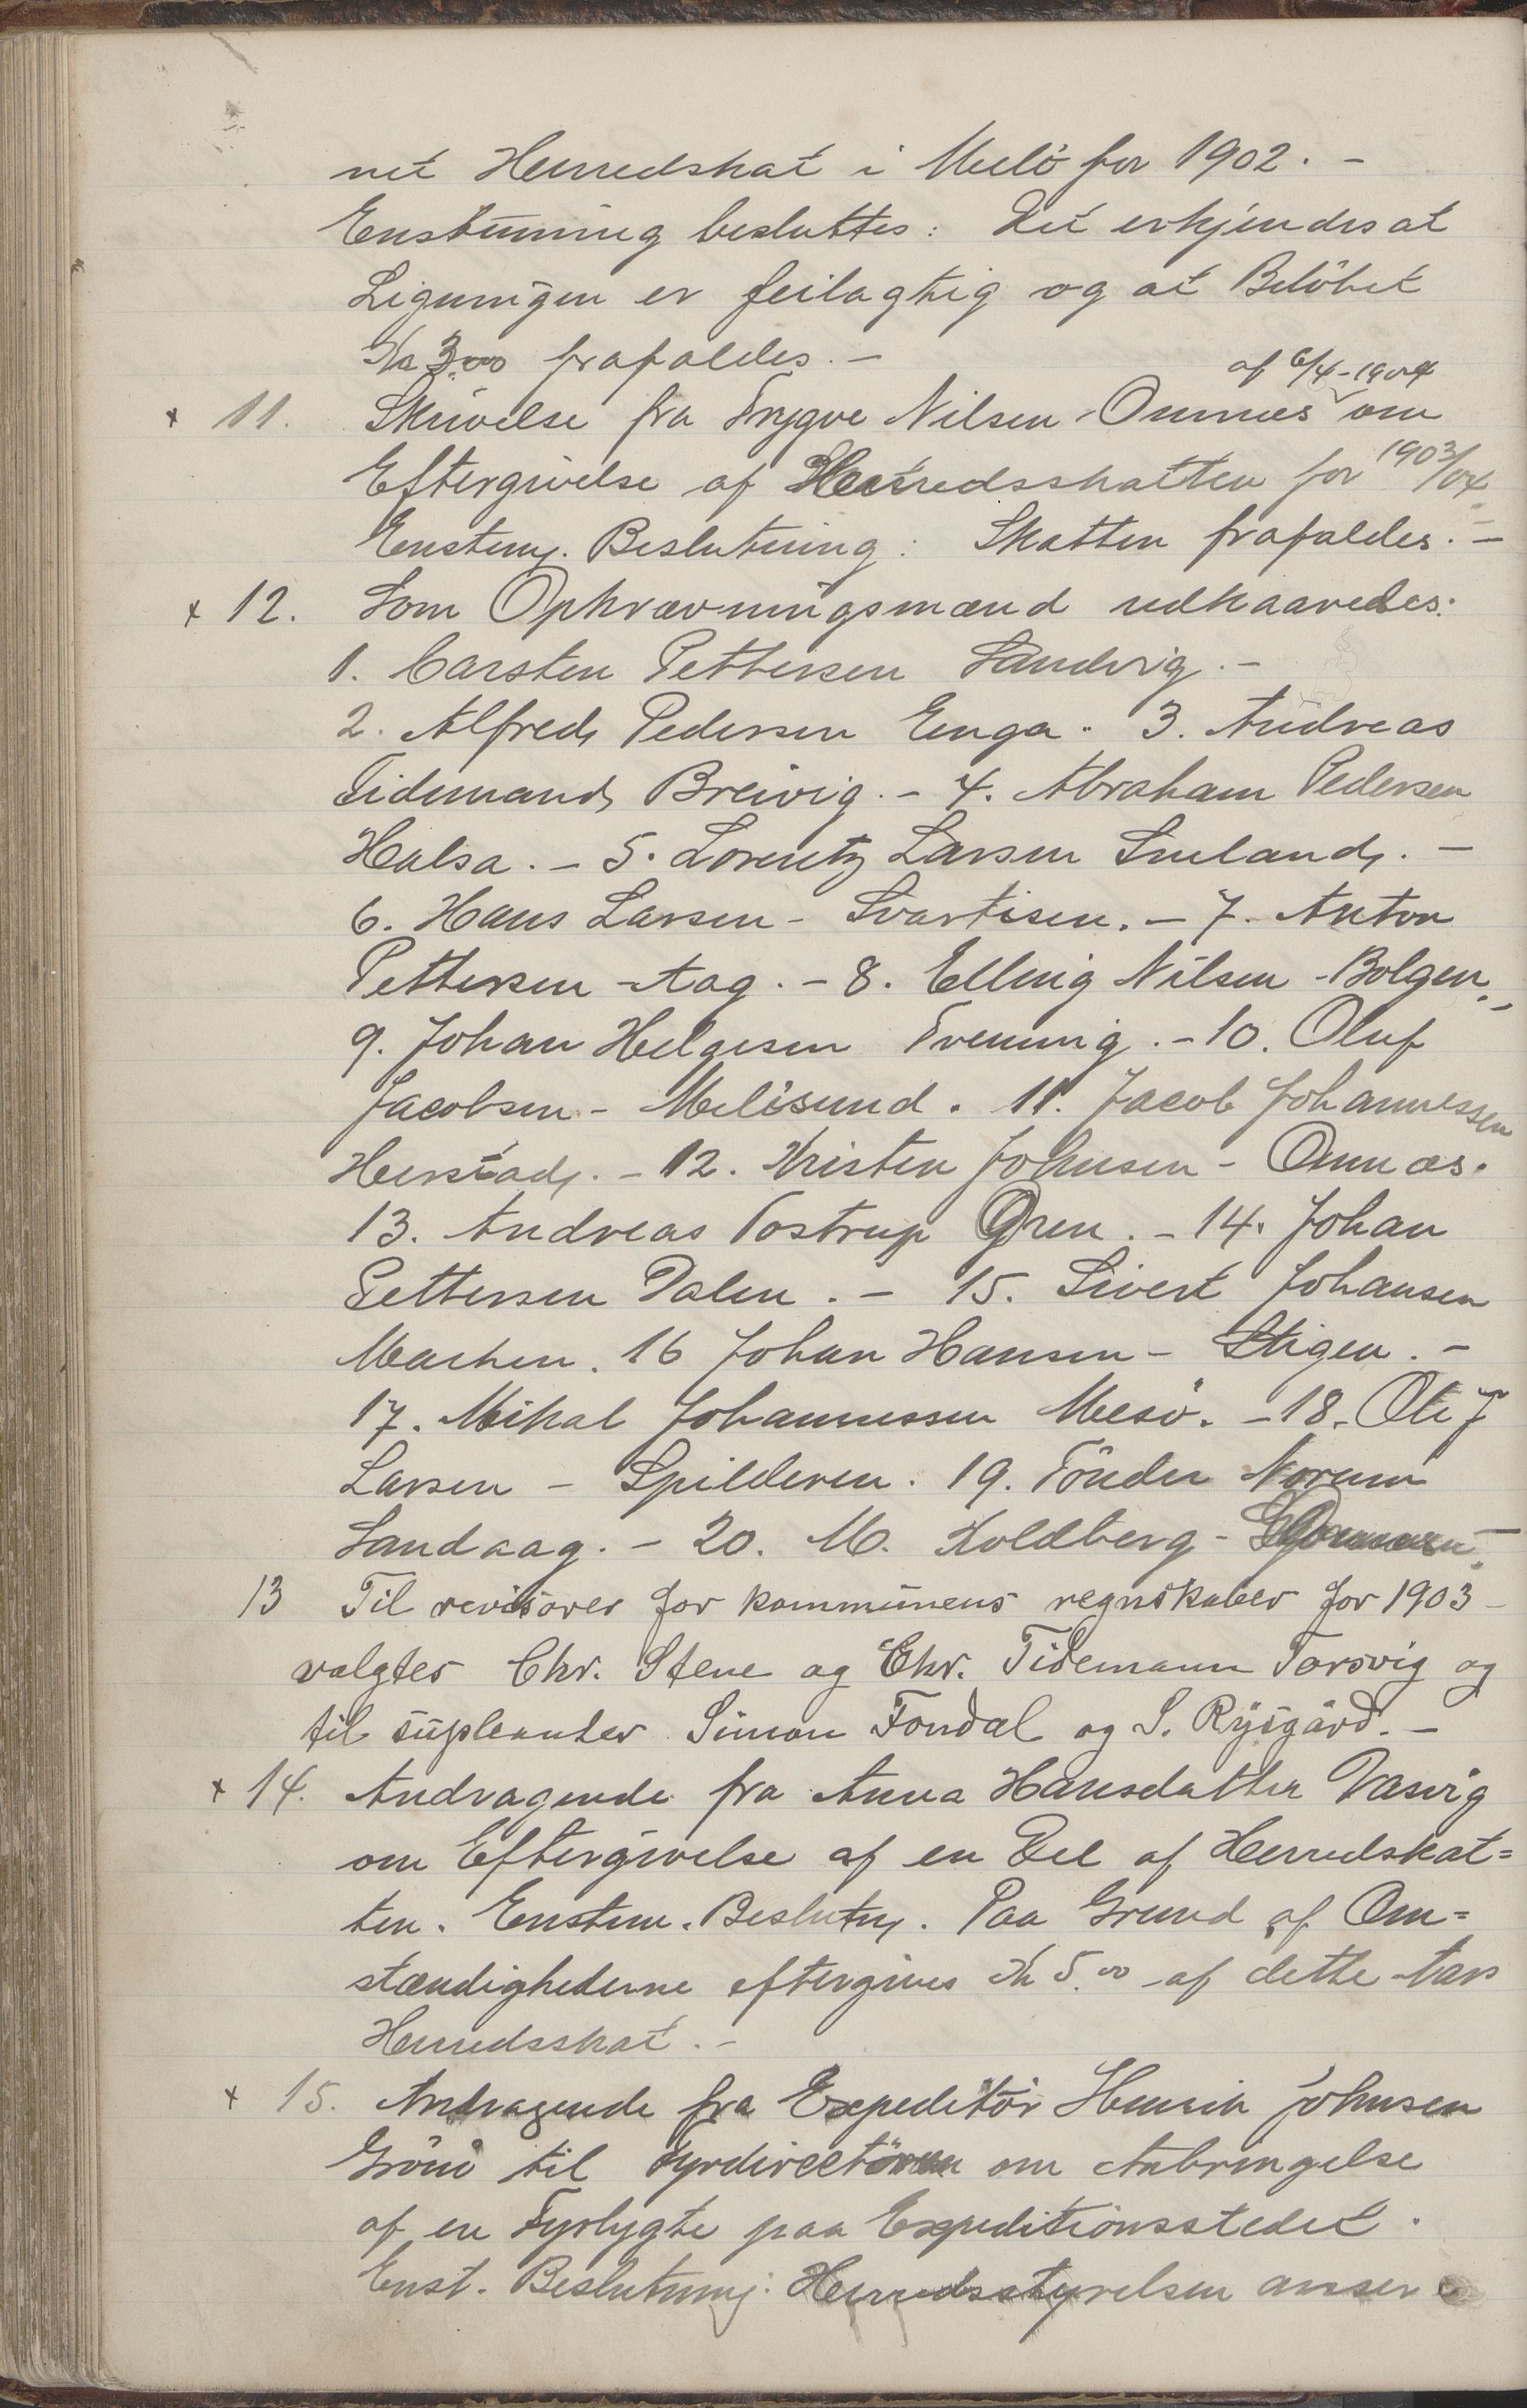 net Herredskat i Melö for 1902. –
Enstemmig besluttes: Det erkjendes at
Ligningen er feilagtig og at Belöbet
Kr 3.00 frafaldes. –
af 6/4-1904
x 11. Skrivelse fra Trygve Nilsen Onnæs om
Eftergivelse af Herredsskatten for 1903/04.
Enstemg. Beslutning: Skatten frafaldes. –
x 12. Som Ophrævningsmænd udkaaredes:
1. Carsten Pettersen Sandvig. –
2. Alfred Pedersen Enga. 3. Andreas
Tidemand Breivig. – 4. Abraham Pedersen
Halsa. – 5. Lorentz Larsen Smeland. –
6. Hans Larsen – Svartisen. – 7. Anton
Pettersen – Aag. – 8. Elling Nilsen – Bolgen. –
9. Johan Helgesen Trenning. – 10. Oluf
Jacobsen – Melösund. 11. Jacob Johannessen
Herstad. – 12. Kristen Johnsen – Onnæs.
13. Andreas Tostrup Ören. – 14. Johan
Pettersen Dalen. – 15. Sivert Johansen
Maehen. 16 Johan Hansen – Stigen. –
17. Mikal Johannessen Mesö. – 18. Ole J
Larsen – Spilderen. 19. Tönder Norum
Sandaag. – 20. M. Koldberg –
13 Til revisorer for kommunens regnskaber for 1903 –
valgtes Chr. Stene og Chr. Tidemann Torsvig og
til supleanter Simon Fondal og S. Rysgård. –
x 14. Andragende fra Anna Hansdatter Vasvig
om Eftergivelse af en Del af Herredskat=
ten. Enstem. Beslutng. Paa Grund af Om=
stændighederne eftergives Kr 5.00 af dette Aars
Herredsskat. –
x 15. Andragende fra Expeditör Henrik Johnsen
Grönö til Fyrdirectören om Anbringelse
af en Fyrlygte paa Expeditionsstedet.
Enst. Beslutning: Herredsstyrelsen anser